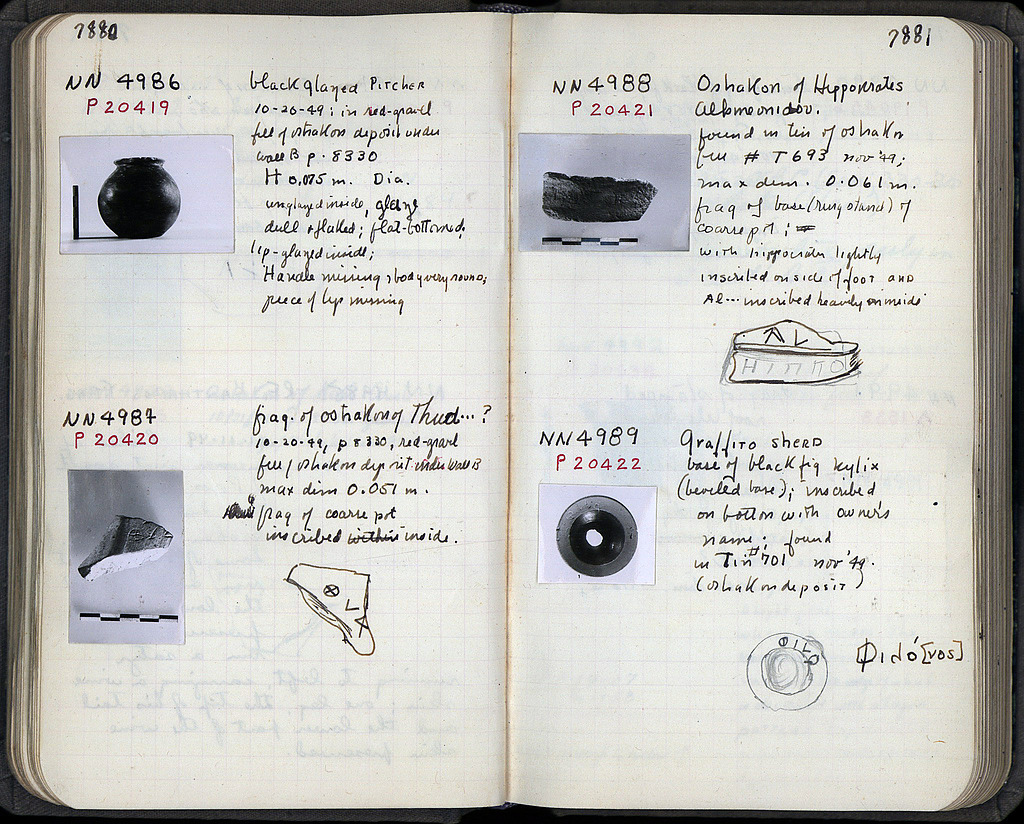 7880
NN 4986
P 20419
black glazed Pitcher
10-20-49; in red-gravel
fill of ostrakon deposit under
wall B p. 8330
H 0.075 m. Dia.
unglazed inside, glaze
dull & flaked; flat-bottomed;
lip-glazed inside;
Handle missing; body very round;
piece of lip missing
NN 4987
P 20420
frag. of ostrakon of Thud...?
10-20-49, p 8330, red-gravel
fill of ostrakon deposit under Wall B
max dim 0.051 m.
frag of coarse pot
inscribed within inside.
7881
NN 4988
P 20421
Ostrakon of Hippokrates
Alkmeonidou.
found in tin of ostraka
fill # T 693 nov '49;
max dim. 0.061 m.
frag of base (ring stand) of
coarse pot;
with hippokrates lightly
inscribed on side of foot and
Al... inscribed heavily on inside
ΑL
ΗΙΠΠΟ
NN 4989
P 20422
Graffito sherd
base of black fig kylix
(beveled base); inscribed
on bottom with owner's
name; found
in Tin # 701 nov '49.
(ostrakon deposit)
ΦΙLΟ
Φιλό[νος]